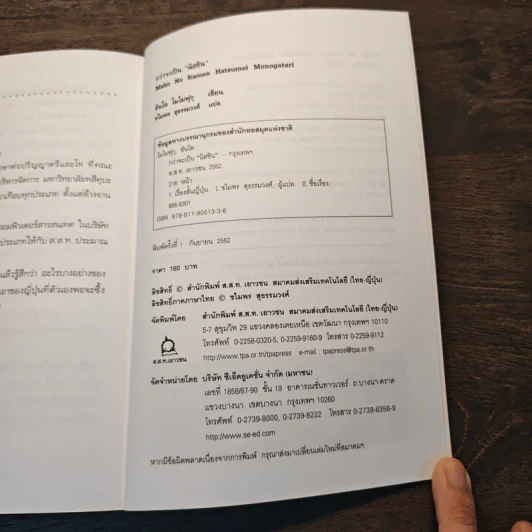 ษาต่อปริญญาตรีและโท ที่คณะ
บริหารจัดการ มหาวิทยาลัยทสึคุบะ
านเกือบทุกประเภท ตั้งแต่ล้างจาน
อมพิวเตอร์สารสนเทศ ในบริษัท
ประเภทให้กับ ส.ส.ท. ประมาณ
แล้วรู้สึกว่า อะไรบางอย่างของ
เอาของญี่ปุ่นที่ตัวเองพอจะซึ้ง
กว่าจะเป็น "นิสชิน"
Maho No Ramen Hatsumei Monogatari
อันโด โมโมฟุกุ เขียน
ชไมพร สุธรรมวงศ์ แปล
ข้อมูลทางบรรณานุกรมของสำนักหอสมุดแห่งชาติ
โมโมฟุกุ, อันโด.
กว่าจะเป็น "นิสชิน".-- กรุงเทพฯ :
ส.ส.ท. เยาวชน, 2552.
หน้า.
1. เรื่องสั้นญี่ปุ่น. I. ชไมพร สุธรรมวงศ์, ผู้แปล. II. ชื่อเรื่อง.
895.6301
ISBN 978-611-90013-3-6
พิมพ์ครั้งที่ 1 กันยายน 2552
ราคา 180 บาท
ลิขสิทธิ์ © สำนักพิมพ์ ส.ส.ท. เยาวชน สมาคมส่งเสริมเทคโนโลยี (ไทย-ญี่ปุ่น)
ลิขสิทธิ์ภาคภาษาไทย © ชไมพร สุธรรมวงศ์
จัดพิมพ์โดย สำนักพิมพ์ ส.ส.ท. เยาวชน สมาคมส่งเสริมเทคโนโลยี (ไทย-ญี่ปุ่น)
5-7 สุขุมวิท 29 แขวงคลองเตยเหนือ เขตวัฒนา กรุงเทพฯ 10110
โทรศัพท์ 0-2258-0320-5, 0-2259-9160-9 โทรสาร 0-2259-9112
http://www.tpa.or.th/tpapress e-mail : tpapress@tpa.or.th
ส.ส.ท.เยาวชน
จัดจำหน่ายโดย บริษัท ซีเอ็ดยูเคชั่น จำกัด (มหาชน)
เลขที่ 1858/87-90 ชั้น 19 อาคารเนชั่นทาวเวอร์ ถ.บางนา-ตราด
แขวงบางนา เขตบางนา กรุงเทพฯ 10260
โทรศัพท์ 0-2739-8000, 0-2739-8222 โทรสาร 0-2739-8356-9
http://www.se-ed.com
หากมีข้อผิดพลาดเนื่องจากการพิมพ์ กรุณาส่งมาเปลี่ยนเล่มใหม่ที่สมาคมฯ